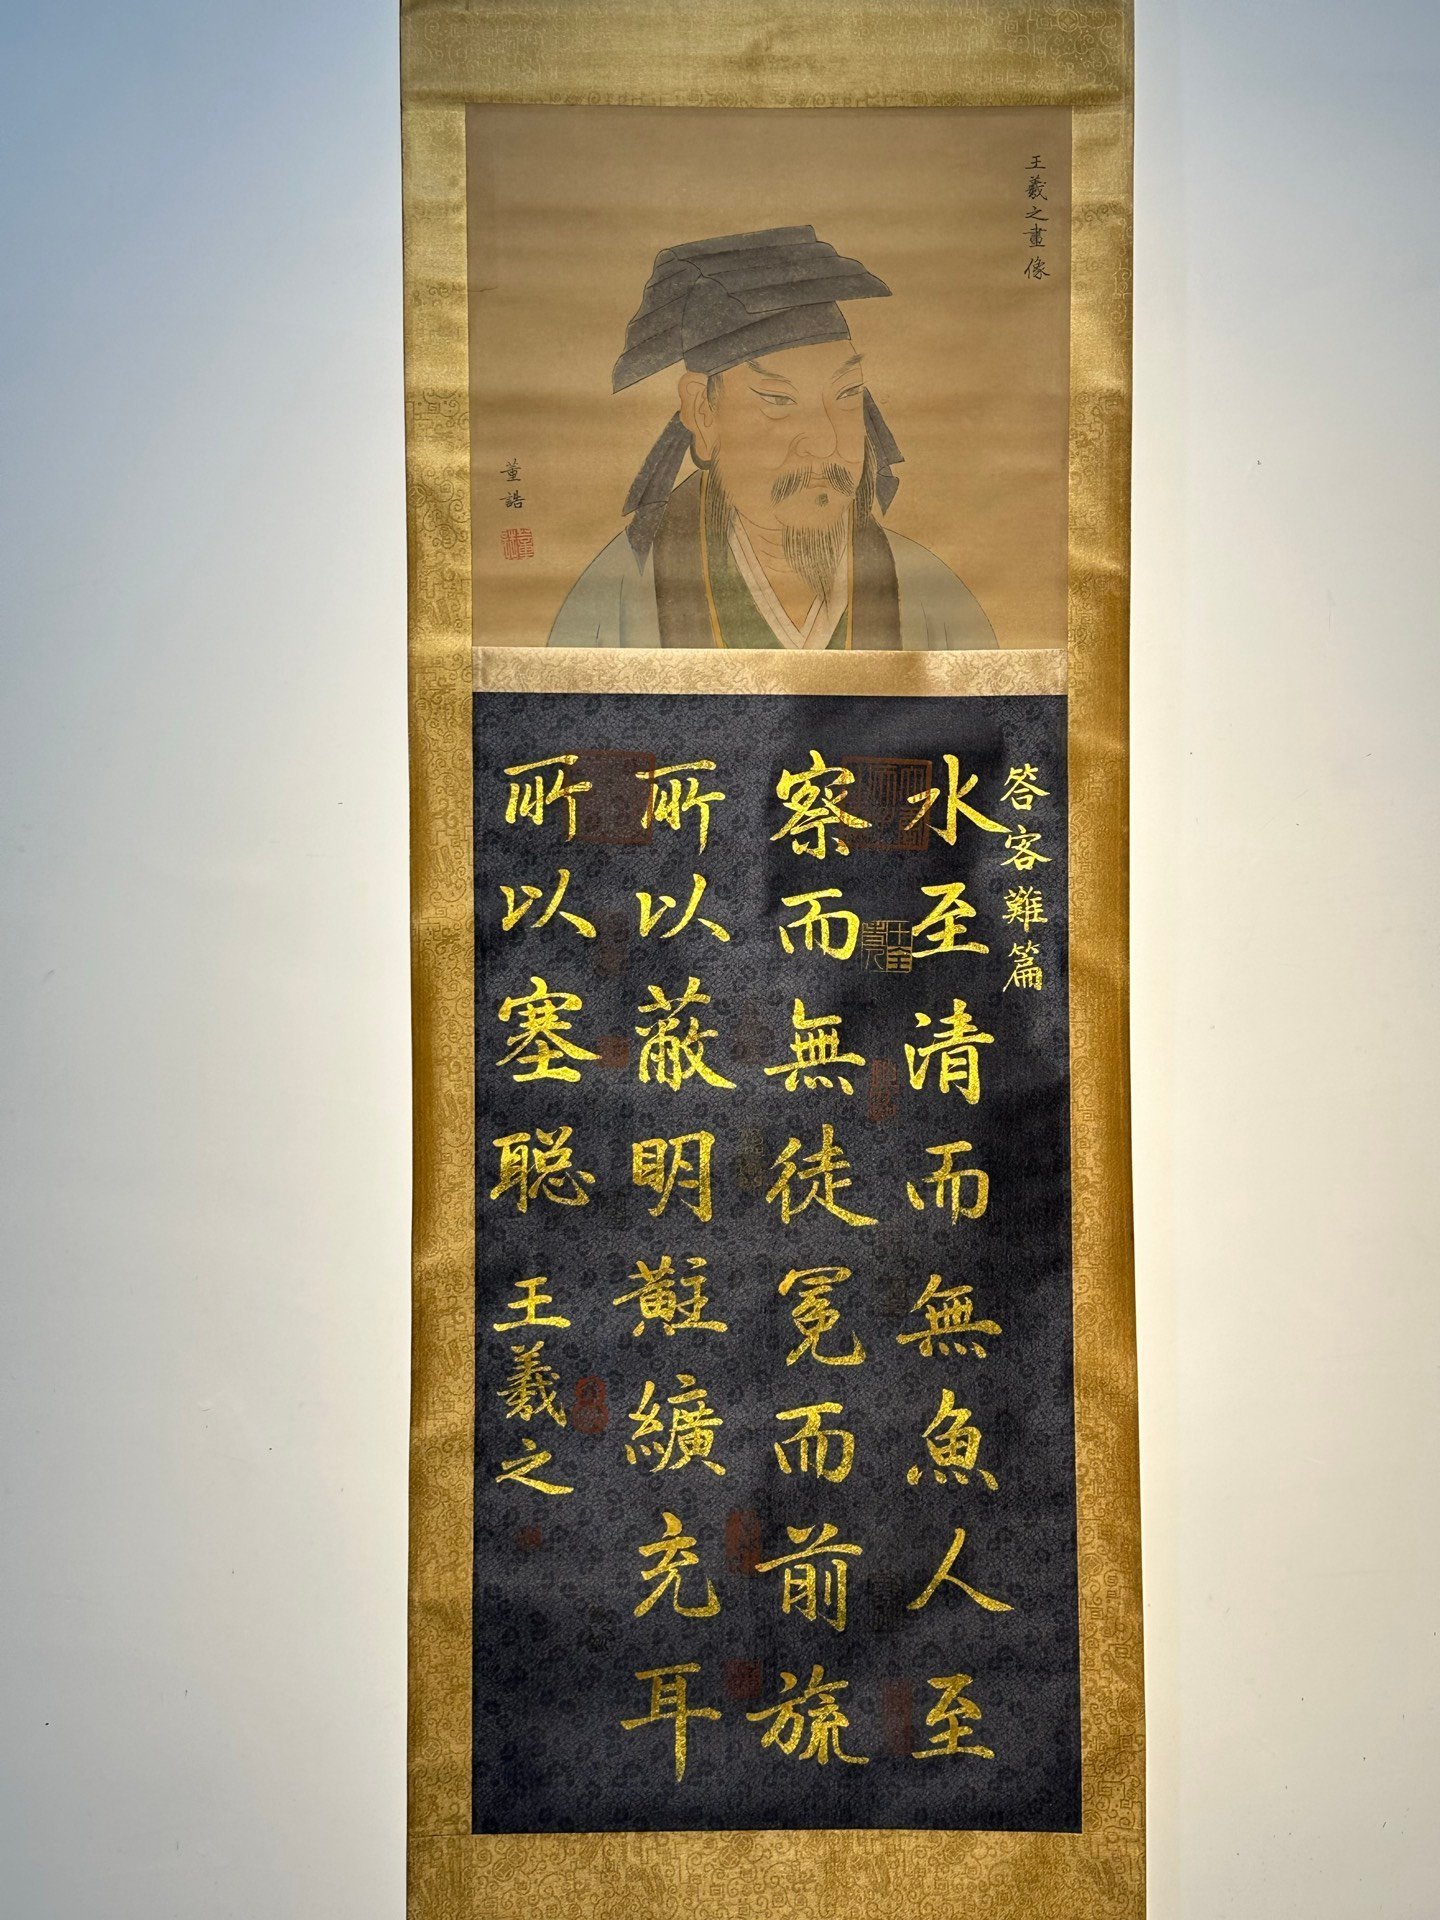 王羲之畫像
董誥
答客難篇
水至清而無魚人至
察而無徒冕而前旒
所以蔽明黈纊充耳
所以塞聰
王羲之